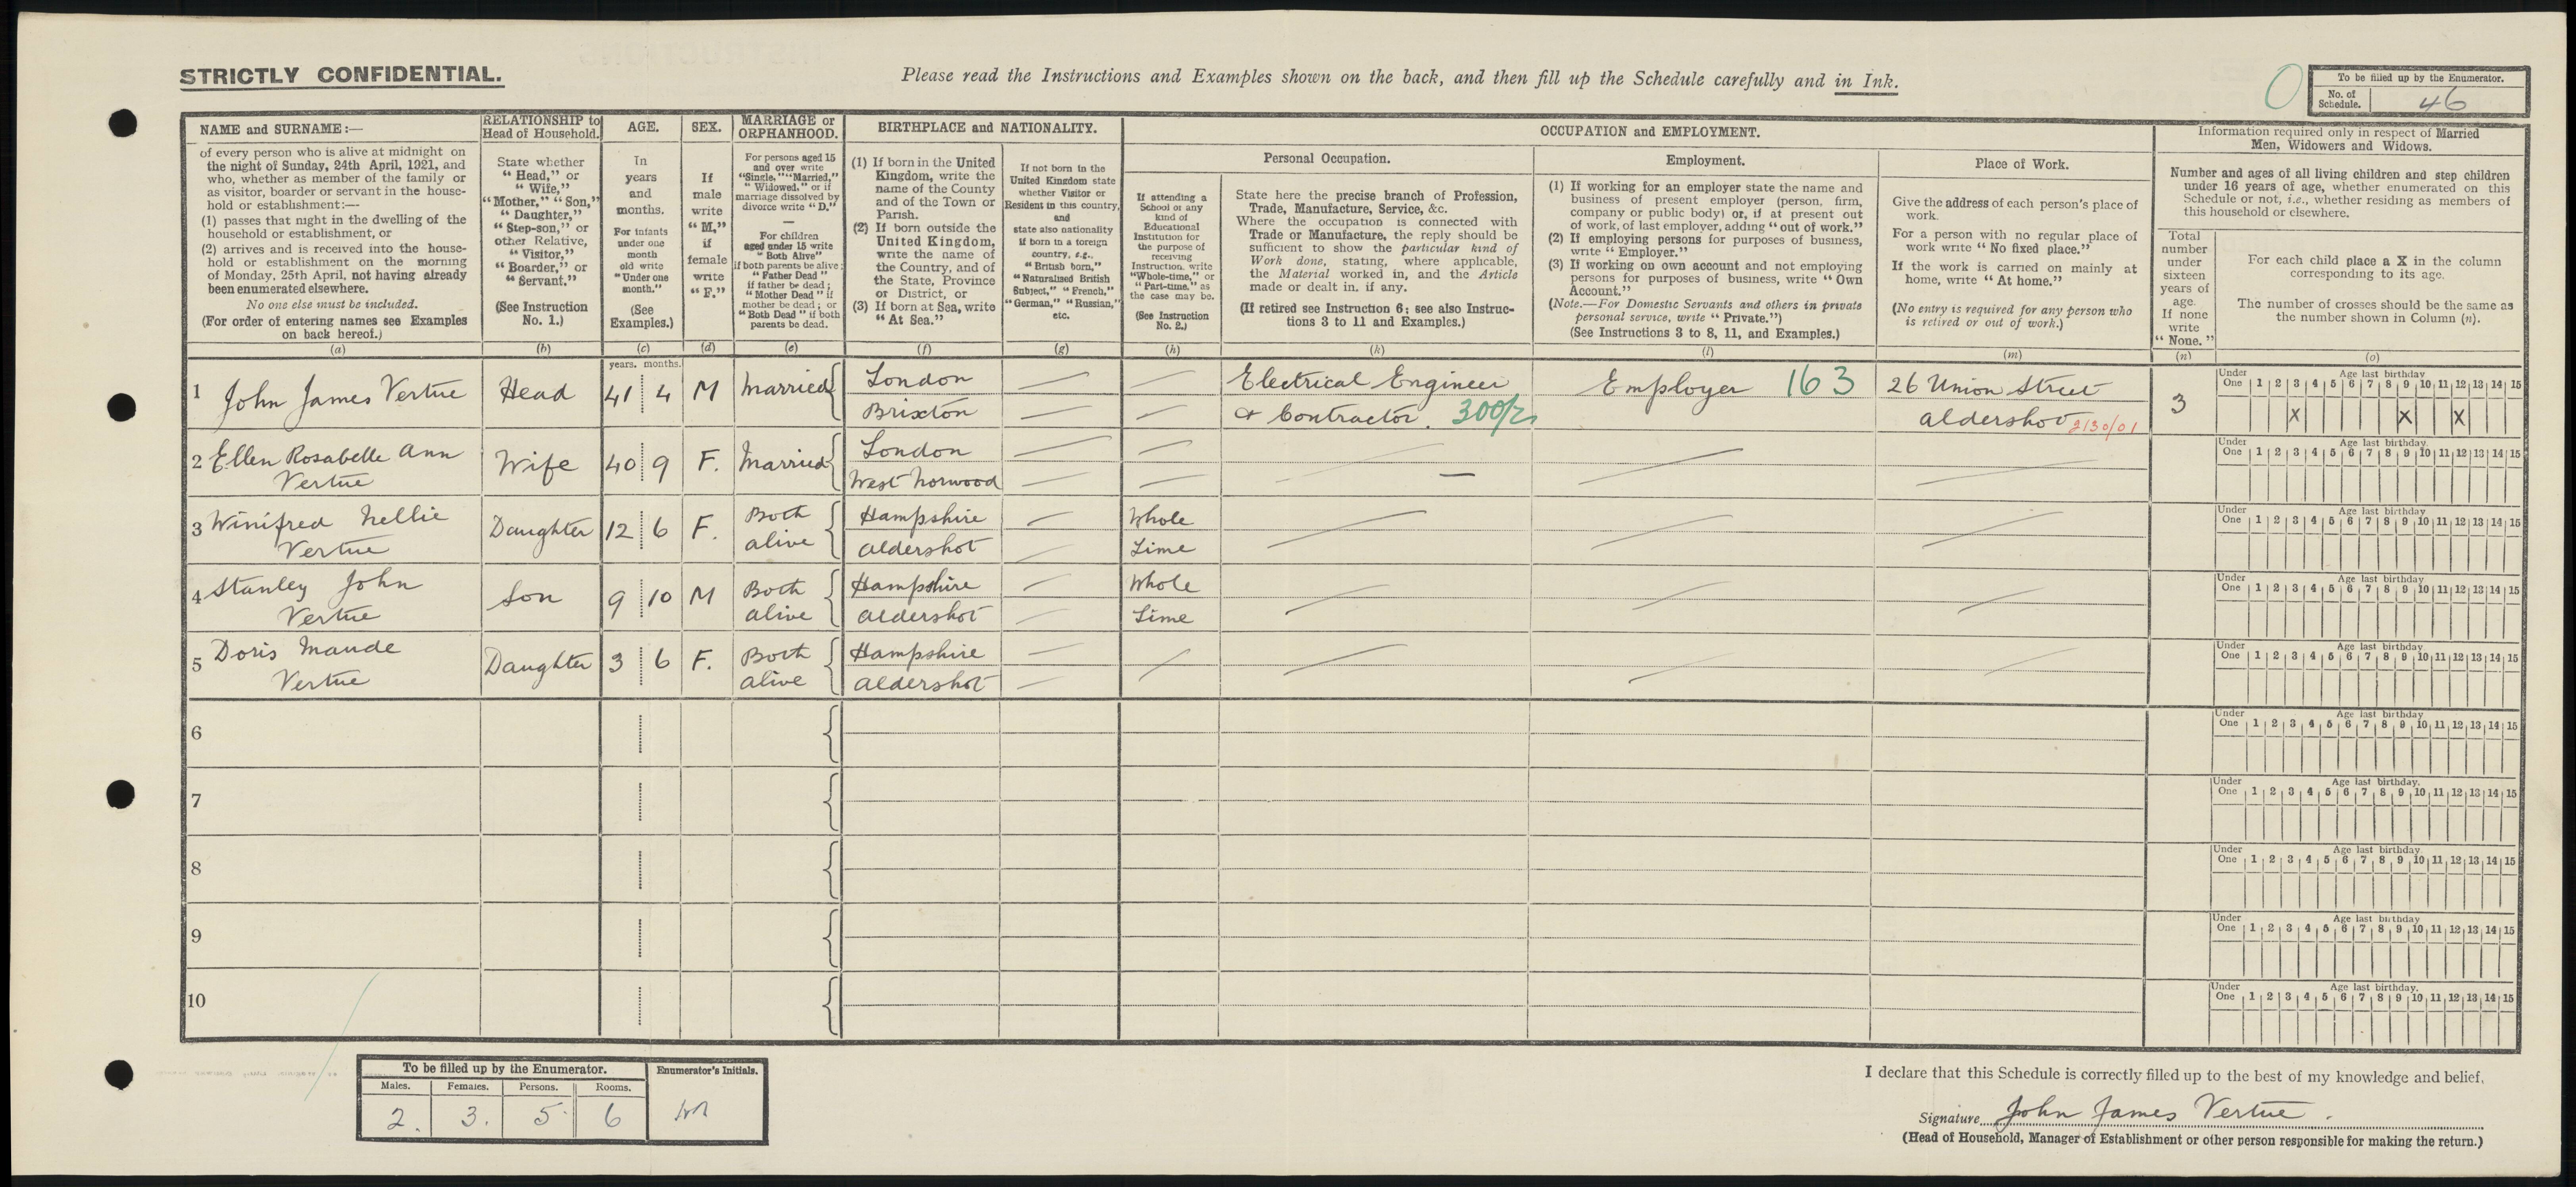 STRICTLY CONFIDENTIAL.
Please read the Instructions and Examples shown on the back, and then fill up the Schedule carefully and in Ink.
To be filled up by the Enumerator.
No. of Schedule. 46
NAME and SURNAME :—
of every person who is alive at midnight on
the night of Sunday, 24th April, 1921, and
who, whether as member of the family or
as visitor, boarder or servant in the house-
hold or establishment:—
(1) passes that night in the dwelling of the
household or establishment, or
(2) arrives and is received into the house-
hold or establishment on the morning
of Monday, 25th April, not having already
been enumerated elsewhere.
No one else must be included.
(For order of entering names see Examples
on back hereof.)
(a)
RELATIONSHIP to
Head of Household.
State whether
"Head," or
"Wife,"
"Mother," "Son,"
"Daughter,"
"Step-son," or
other Relative,
"Visitor,"
"Boarder," or
"Servant."
(See Instruction
No. 1.)
(b)
AGE.
In
years
and
months.
For infants
under one
month
old write
"Under one
month."
(See
Examples.)
(c)
SEX.
If
male
write
"M,"
if
female
write
"F."
(d)
MARRIAGE or
ORPHANHOOD.
For persons aged 15
and over write
"Single," "Married,"
"Widowed," or if
marriage dissolved by
divorce write "D."
—
For children
aged under 15 write
"Both Alive"
if both parents be alive;
"Father Dead"
if father be dead;
"Mother Dead" if
mother be dead; or
"Both Dead" if both
parents be dead.
(e)
BIRTHPLACE and NATIONALITY.
(1) If born in the United
Kingdom, write the
name of the County
and of the Town or
Parish.
(2) If born outside the
United Kingdom,
write the name of
the Country, and of
the State, Province
or District, or
(3) If born at Sea, write
"At Sea."
(f)
If not born in the
United Kingdom state
whether Visitor or
Resident in this country,
and
state also nationality
if born in a foreign
country, e.g.,
"British born,"
"Naturalised British
Subject," "French,"
"German," "Russian,"
etc.
(g)
OCCUPATION and EMPLOYMENT.
Personal Occupation.
If attending a
School or any
kind of
Educational
Institution for
the purpose of
receiving
Instruction, write
"Whole-time," or
"Part-time," as
the case may be.
(See Instruction
No. 2.)
(h)
State here the precise branch of Profession,
Trade, Manufacture, Service, &c.
Where the occupation is connected with
Trade or Manufacture, the reply should be
sufficient to show the particular kind of
Work done, stating, where applicable,
the Material worked in, and the Article
made or dealt in, if any.
(If retired see Instruction 6; see also Instruc-
tions 3 to 11 and Examples.)
(k)
Employment.
(1) If working for an employer state the name and
business of present employer (person, firm,
company or public body) or, if at present out
of work, of last employer, adding "out of work."
(2) If employing persons for purposes of business,
write "Employer."
(3) If working on own account and not employing
persons for purposes of business, write "Own
Account."
(Note.—For Domestic Servants and others in private
personal service, write "Private.")
(See Instructions 3 to 8, 11, and Examples.)
(l)
Place of Work.
Give the address of each person's place of
work.
For a person with no regular place of
work write "No fixed place."
If the work is carried on mainly at
home, write "At home."
(No entry is required for any person who
is retired or out of work.)
(m)
Information required only in respect of Married
Men, Widowers and Widows.
Number and ages of all living children and step children
under 16 years of age, whether enumerated on this
Schedule or not, i.e., whether residing as members of
this household or elsewhere.
Total
number
under
sixteen
years of
age.
If none
write
"None."
(n)
For each child place a X in the column
corresponding to its age.
The number of crosses should be the same as
the number shown in Column (n).
(o)
years. months.
1 John James Vertue Head 41 4 M Married London Electrical Engineer Employer 163 26 Union Street 3
Brixton & Contractor. 300/2 Aldershot 2130/01
Under One 1 2 3 4 5 6 7 8 9 10 11 12 13 14 15
Age last birthday
X X X
2 Ellen Rosabelle Ann Wife 40 9 F. Married London
Vertue West Norwood
Under One 1 2 3 4 5 6 7 8 9 10 11 12 13 14 15
Age last birthday.
3 Winifred Nellie Daughter 12 6 F. Both Hampshire Whole
Vertue alive Aldershot Time
Under One 1 2 3 4 5 6 7 8 9 10 11 12 13 14 15
Age last birthday
4 Stanley John Son 9 10 M Both Hampshire Whole
Vertue alive Aldershot Time
Under One 1 2 3 4 5 6 7 8 9 10 11 12 13 14 15
Age last birthday
5 Doris Maude Daughter 3 6 F. Both Hampshire
Vertue alive Aldershot
Under One 1 2 3 4 5 6 7 8 9 10 11 12 13 14 15
Age last birthday
6
Under One 1 2 3 4 5 6 7 8 9 10 11 12 13 14 15
Age last birthday
7
Under One 1 2 3 4 5 6 7 8 9 10 11 12 13 14 15
Age last birthday.
8
Under One 1 2 3 4 5 6 7 8 9 10 11 12 13 14 15
Age last birthday
9
Under One 1 2 3 4 5 6 7 8 9 10 11 12 13 14 15
Age last birthday
10
Under One 1 2 3 4 5 6 7 8 9 10 11 12 13 14 15
Age last birthday.
To be filled up by the Enumerator.
Enumerator's Initials.
Males. Females. Persons. Rooms.
2. 3. 5. 6
I declare that this Schedule is correctly filled up to the best of my knowledge and belief.
Signature John James Vertue.
(Head of Household, Manager of Establishment or other person responsible for making the return.)